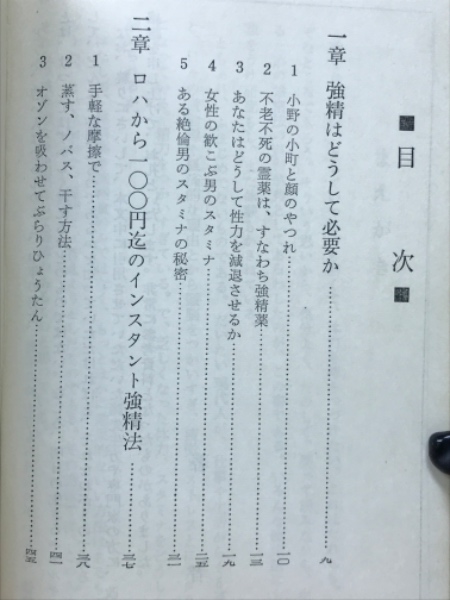 ■目次■
一章 強精はどうして必要か……九
1 小野の小町と顔のやつれ……一〇
2 不老不死の霊薬は、すなわち強精薬……一三
3 あなたはどうして性力を減退させるか……一九
4 女性の歓こぶ男のスタミナ……二五
5 ある絶倫男のスタミナの秘密……三一
二章 ロハから一〇〇円迄のインスタント強精法……三七
1 手軽な摩擦で……三八
2 蒸す、ノバス、干す方法……四一
3 オゾンを吸わせてぶらりひょうたん……四五